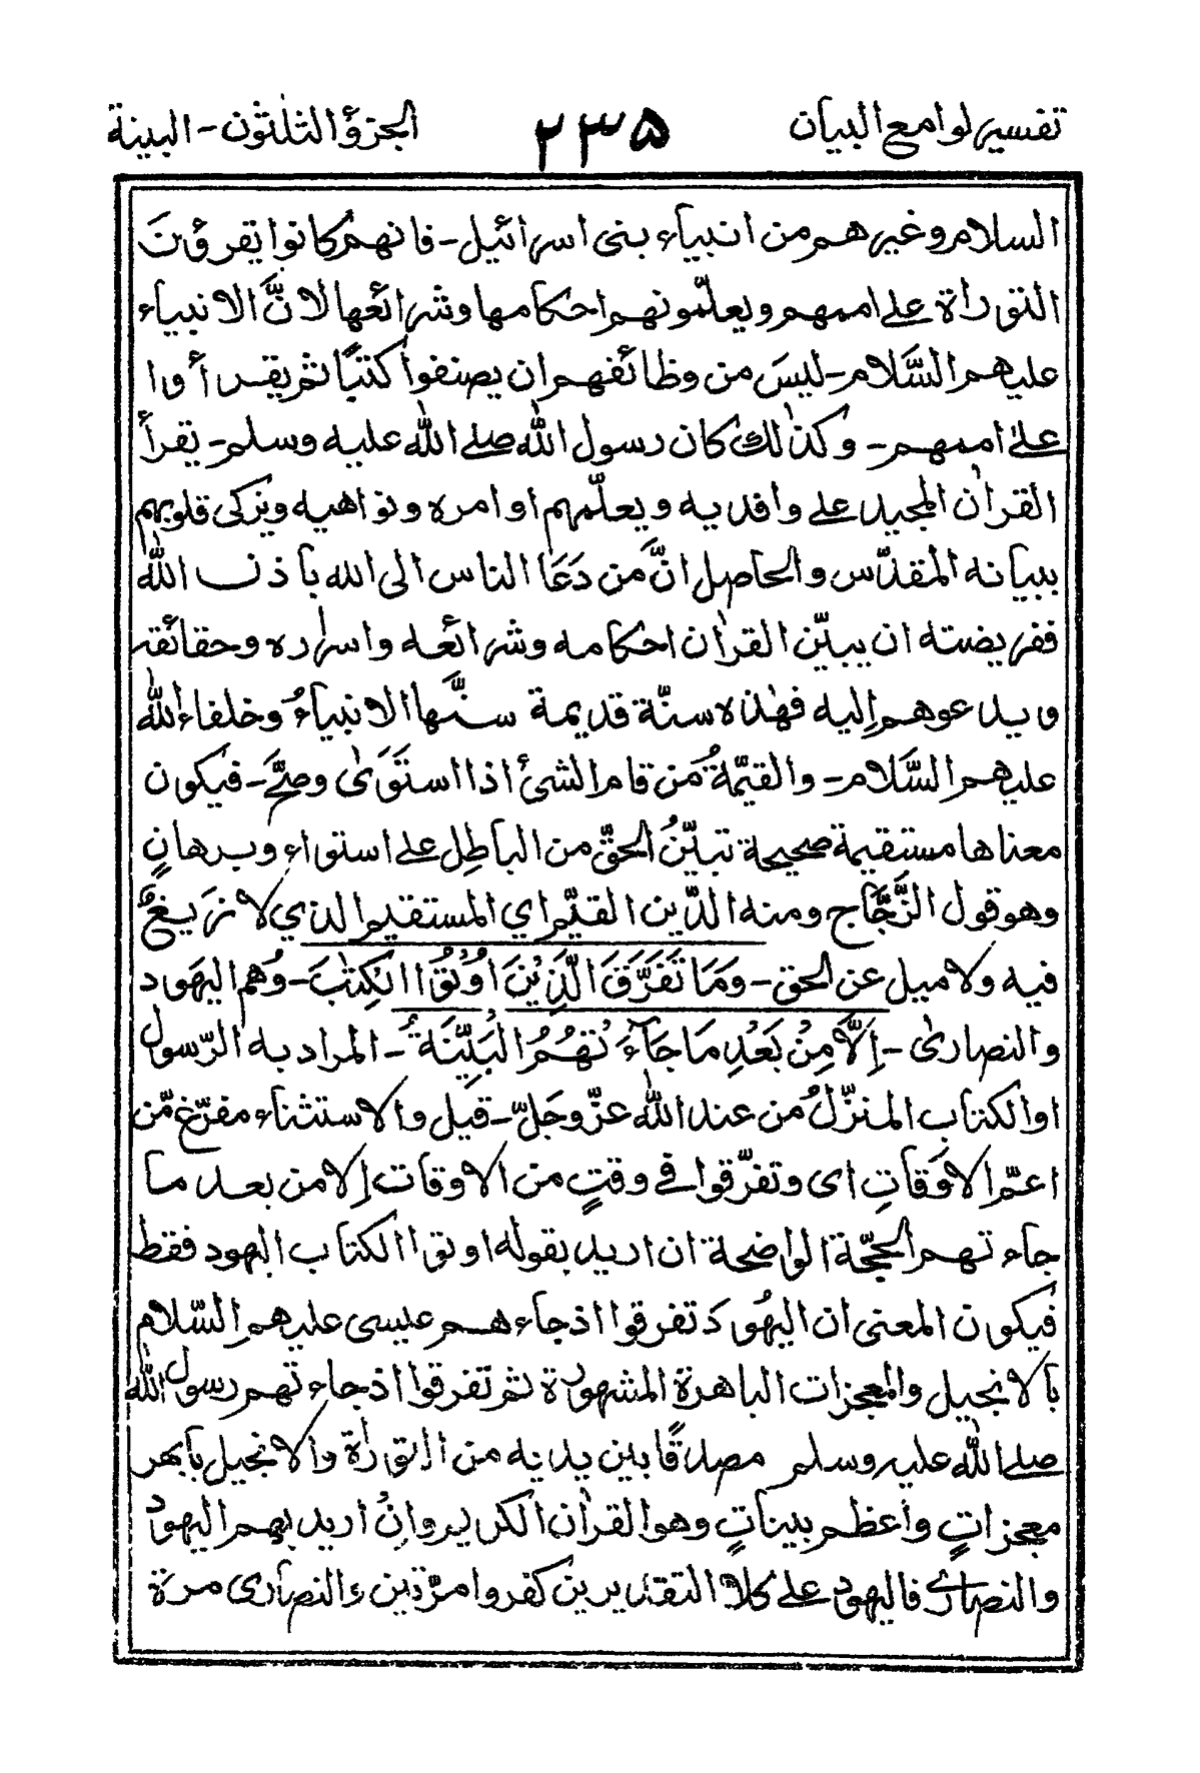 تفسير لوامع البيان ٢٣٥ الجزؤ الثلٰثون - البينة
السلام وغيرهم من انبياء بنى اسرائيل - فانهم كانوا يقرؤن
التوراة على اممهم ويعلّمونهم احكامها وشرائعها لانَّ الانبياء
عليهم السَّلام - ليسَ من وظائفهم ان يصنفوا كتبًا ثم يقرأوا
علىٰ اممهم - وكذٰلك كان رسول الله صلى الله عليه وسلم - يقرأ
القراٰن المجيد على وافديه ويعلّمهم اوامره ونواهيه ويزكى قلوبهم
ببيانه المقدّس والحاصل انَّ من دَعَا الناس الى الله باذن الله
ففريضته ان يبيّن القراٰن احكامه وشرائعه واسراره وحقائقه
ويدعوهم إليه فهٰذه سنّة قديمة سنَّها الانبياءُ وخلفاء الله
عليهم السَّلام - والقيّمةُ من قام الشئ اذا استَوَىٰ وصحَّ - فيكون
معناها مستقيمة صحيحة تبيّنُ الحقّ من الباطِل على استواء وبرهانٍ
وهو قول الزَّجَّاج ومنه الدّين القيّم اي المستقيم الذي لا نزيغُ
فيه ولا ميل عن الحق - وَمَا تَفَرَّقَ الَّذِيْنَ اُوْتُوا الْكِتٰبَ - وُهم اليهود
والنصارىٰ - اِلَّا مِنْ بَعْدِ مَا جَآءَتْهُمُ الْبَيِّنَةُ - المراد به الرّسول
او الكتاب المنزّلُ من عند الله عزّ وجَلّ - قيل والاستثناء مفرّغ مّن
اعمّ الاوَقَاتِ اى وتفرّقوا فى وقتٍ من الاوقات إلا من بعد ما
جاءتهم الحجّة الواضحة ان اريد بقوله اوتوا الكتاب اليهود فقط
فيكون المعنى ان اليهُود تفرقوا اذجاءهم عيسى عليهم السّلام
بالانجيل والمعجزات الباهرة المشهودة ثم تفرقوا اذجاءتهم رسول الله
صلى الله عليه وسلم مصدقًا بين يديه من التوراٰة والانجيل بابهر
معجزاتٍ واعظم بيناتٍ وهو القراٰن الكريم وانْ اريد بهم اليهود
والنصارى فاليهود على كلا التقديرين كفروا مرّتين والنصارى مرة